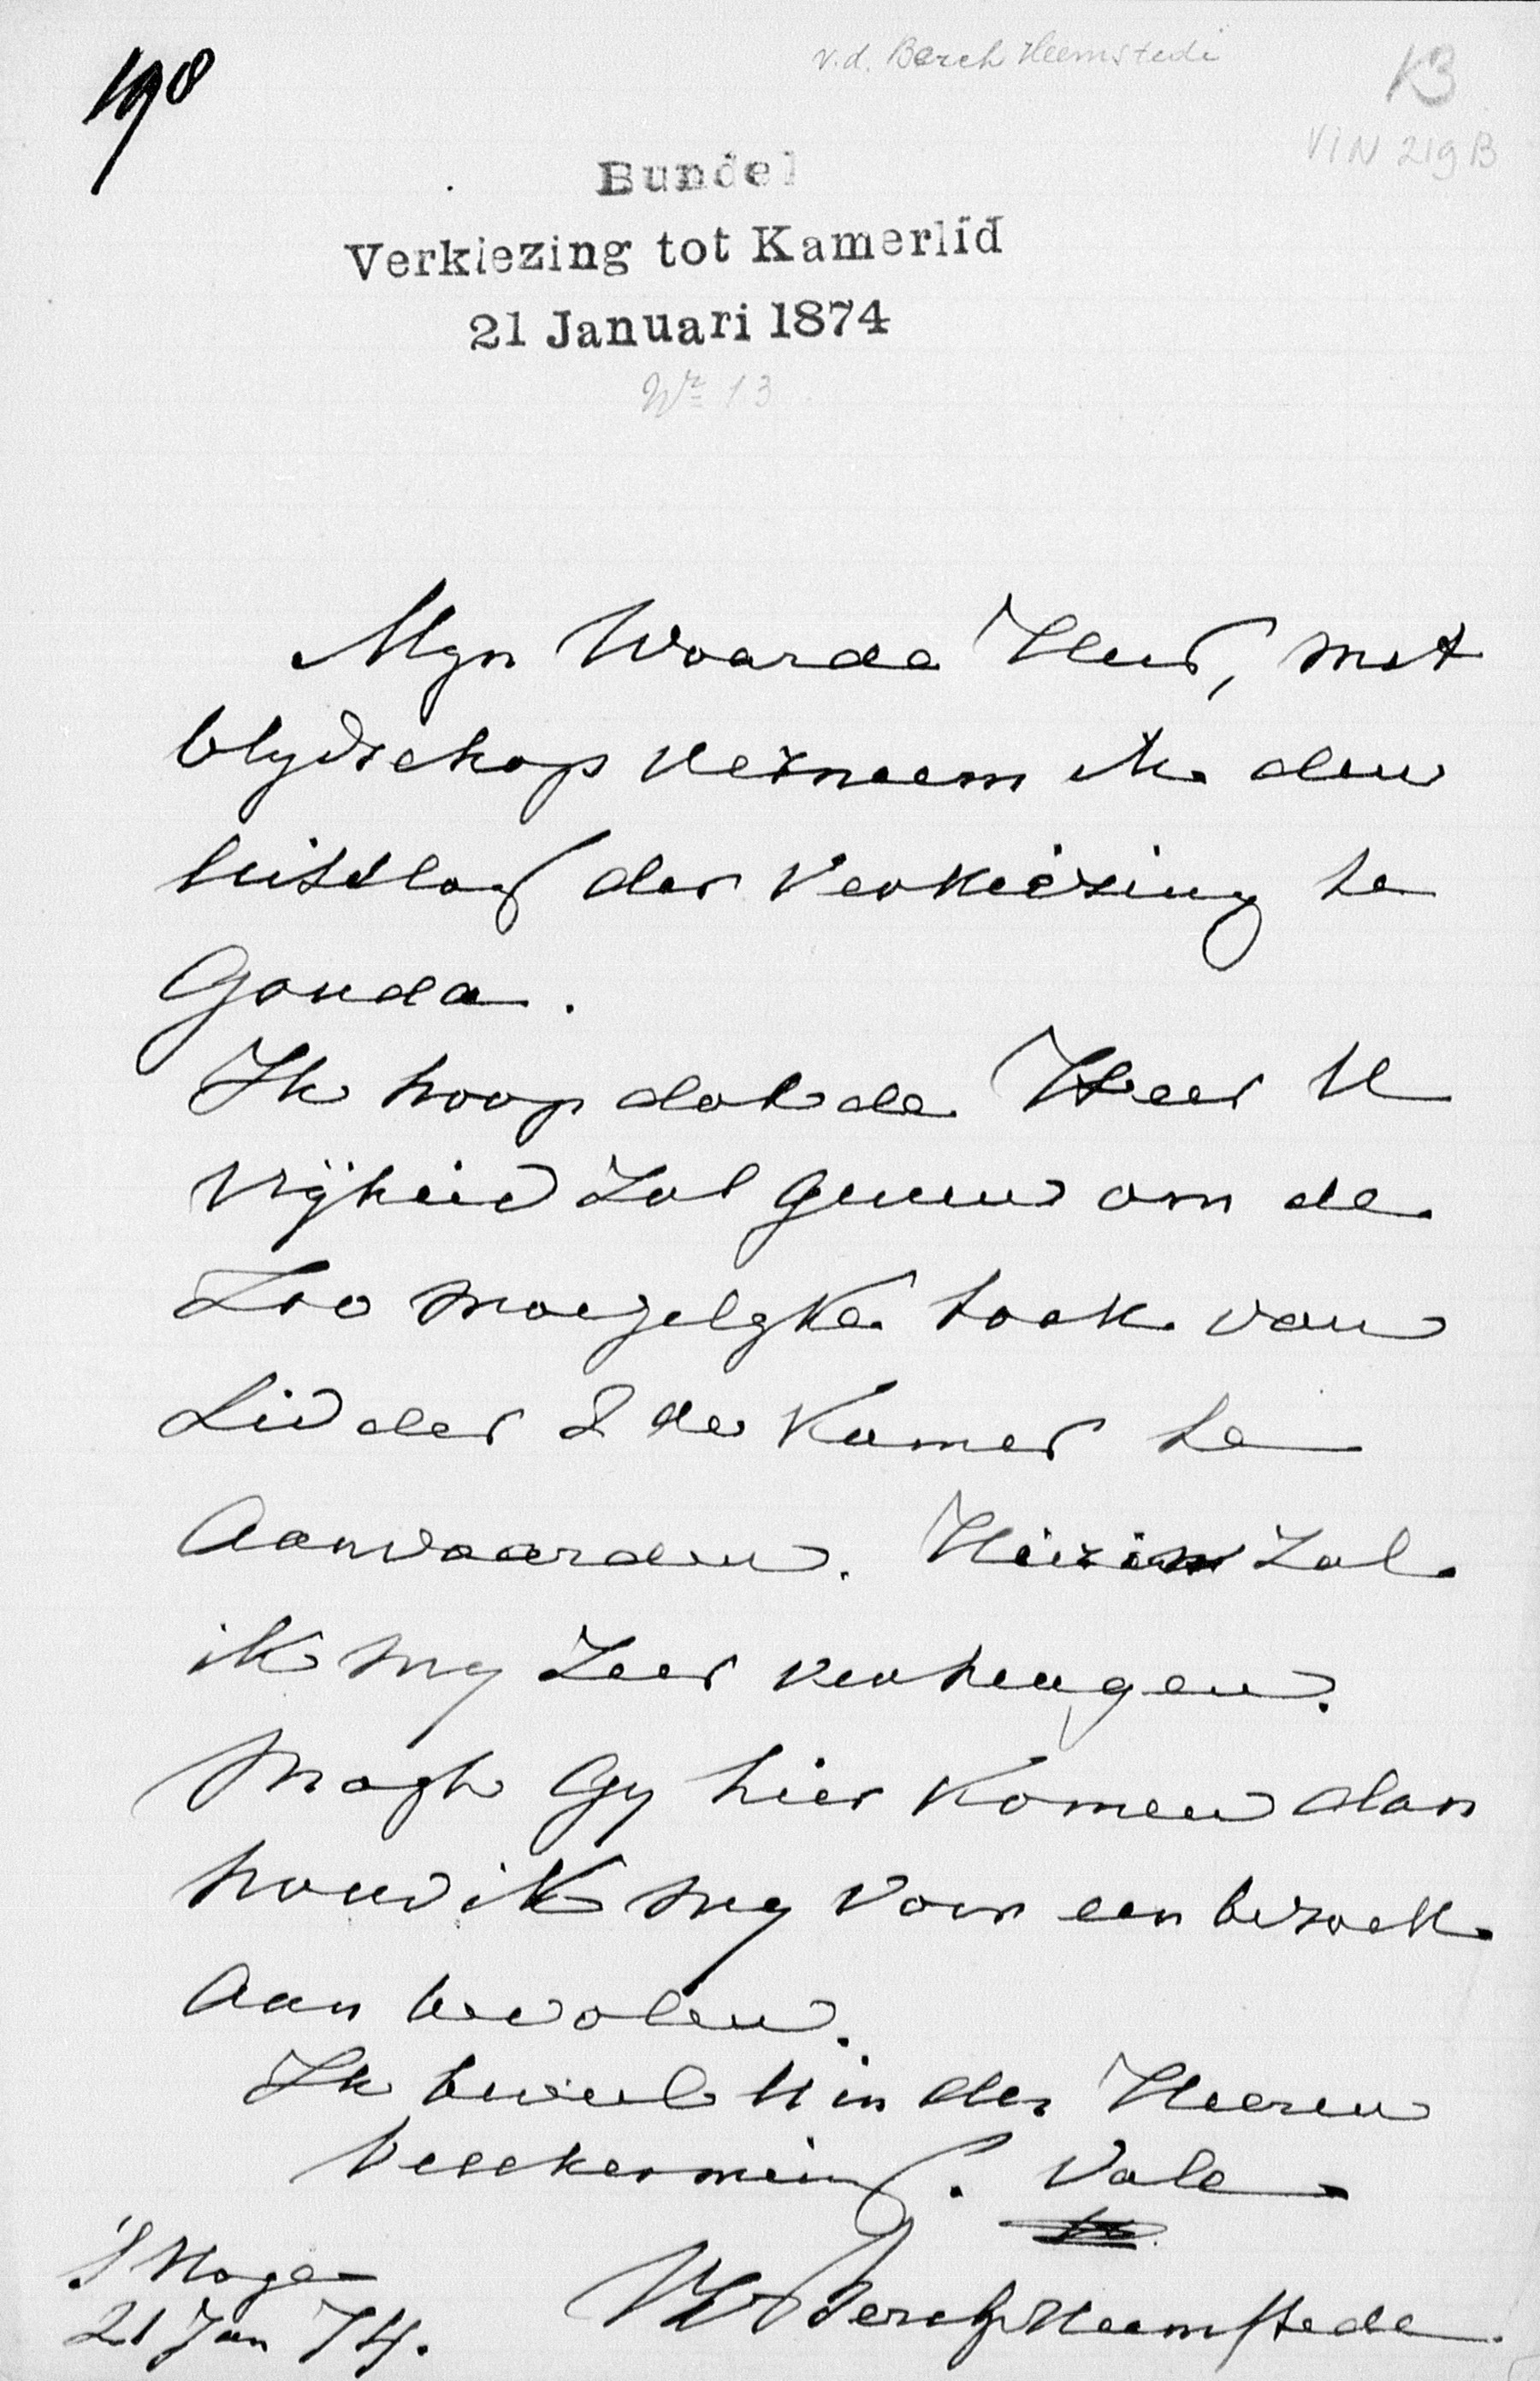 198
v.d. Berch Heemstede
13
VIN 219 B
Bundel
Verkiezing tot Kamerlid
21 Januari 1874
No 13
Mijn Waarde Heer, met
blydschap verneem ik den
uitslag der Verkiezing te
Gouda.
Ik hoop dat de Heer U
vrijheid zal geven om de
Zoo moeyelyke taak van
Lid der 2de Kamer te
Aanvaarden. Hierin zal
ik my Zeer verheugen.
Mogt Gy hier Komen dan
houd ik my voor een bezoek
aan bevolen.
Ik beveel U in des Heeren
bescherming. Vale
's Hage
21 Jan 74.
VdBerch Heemstede